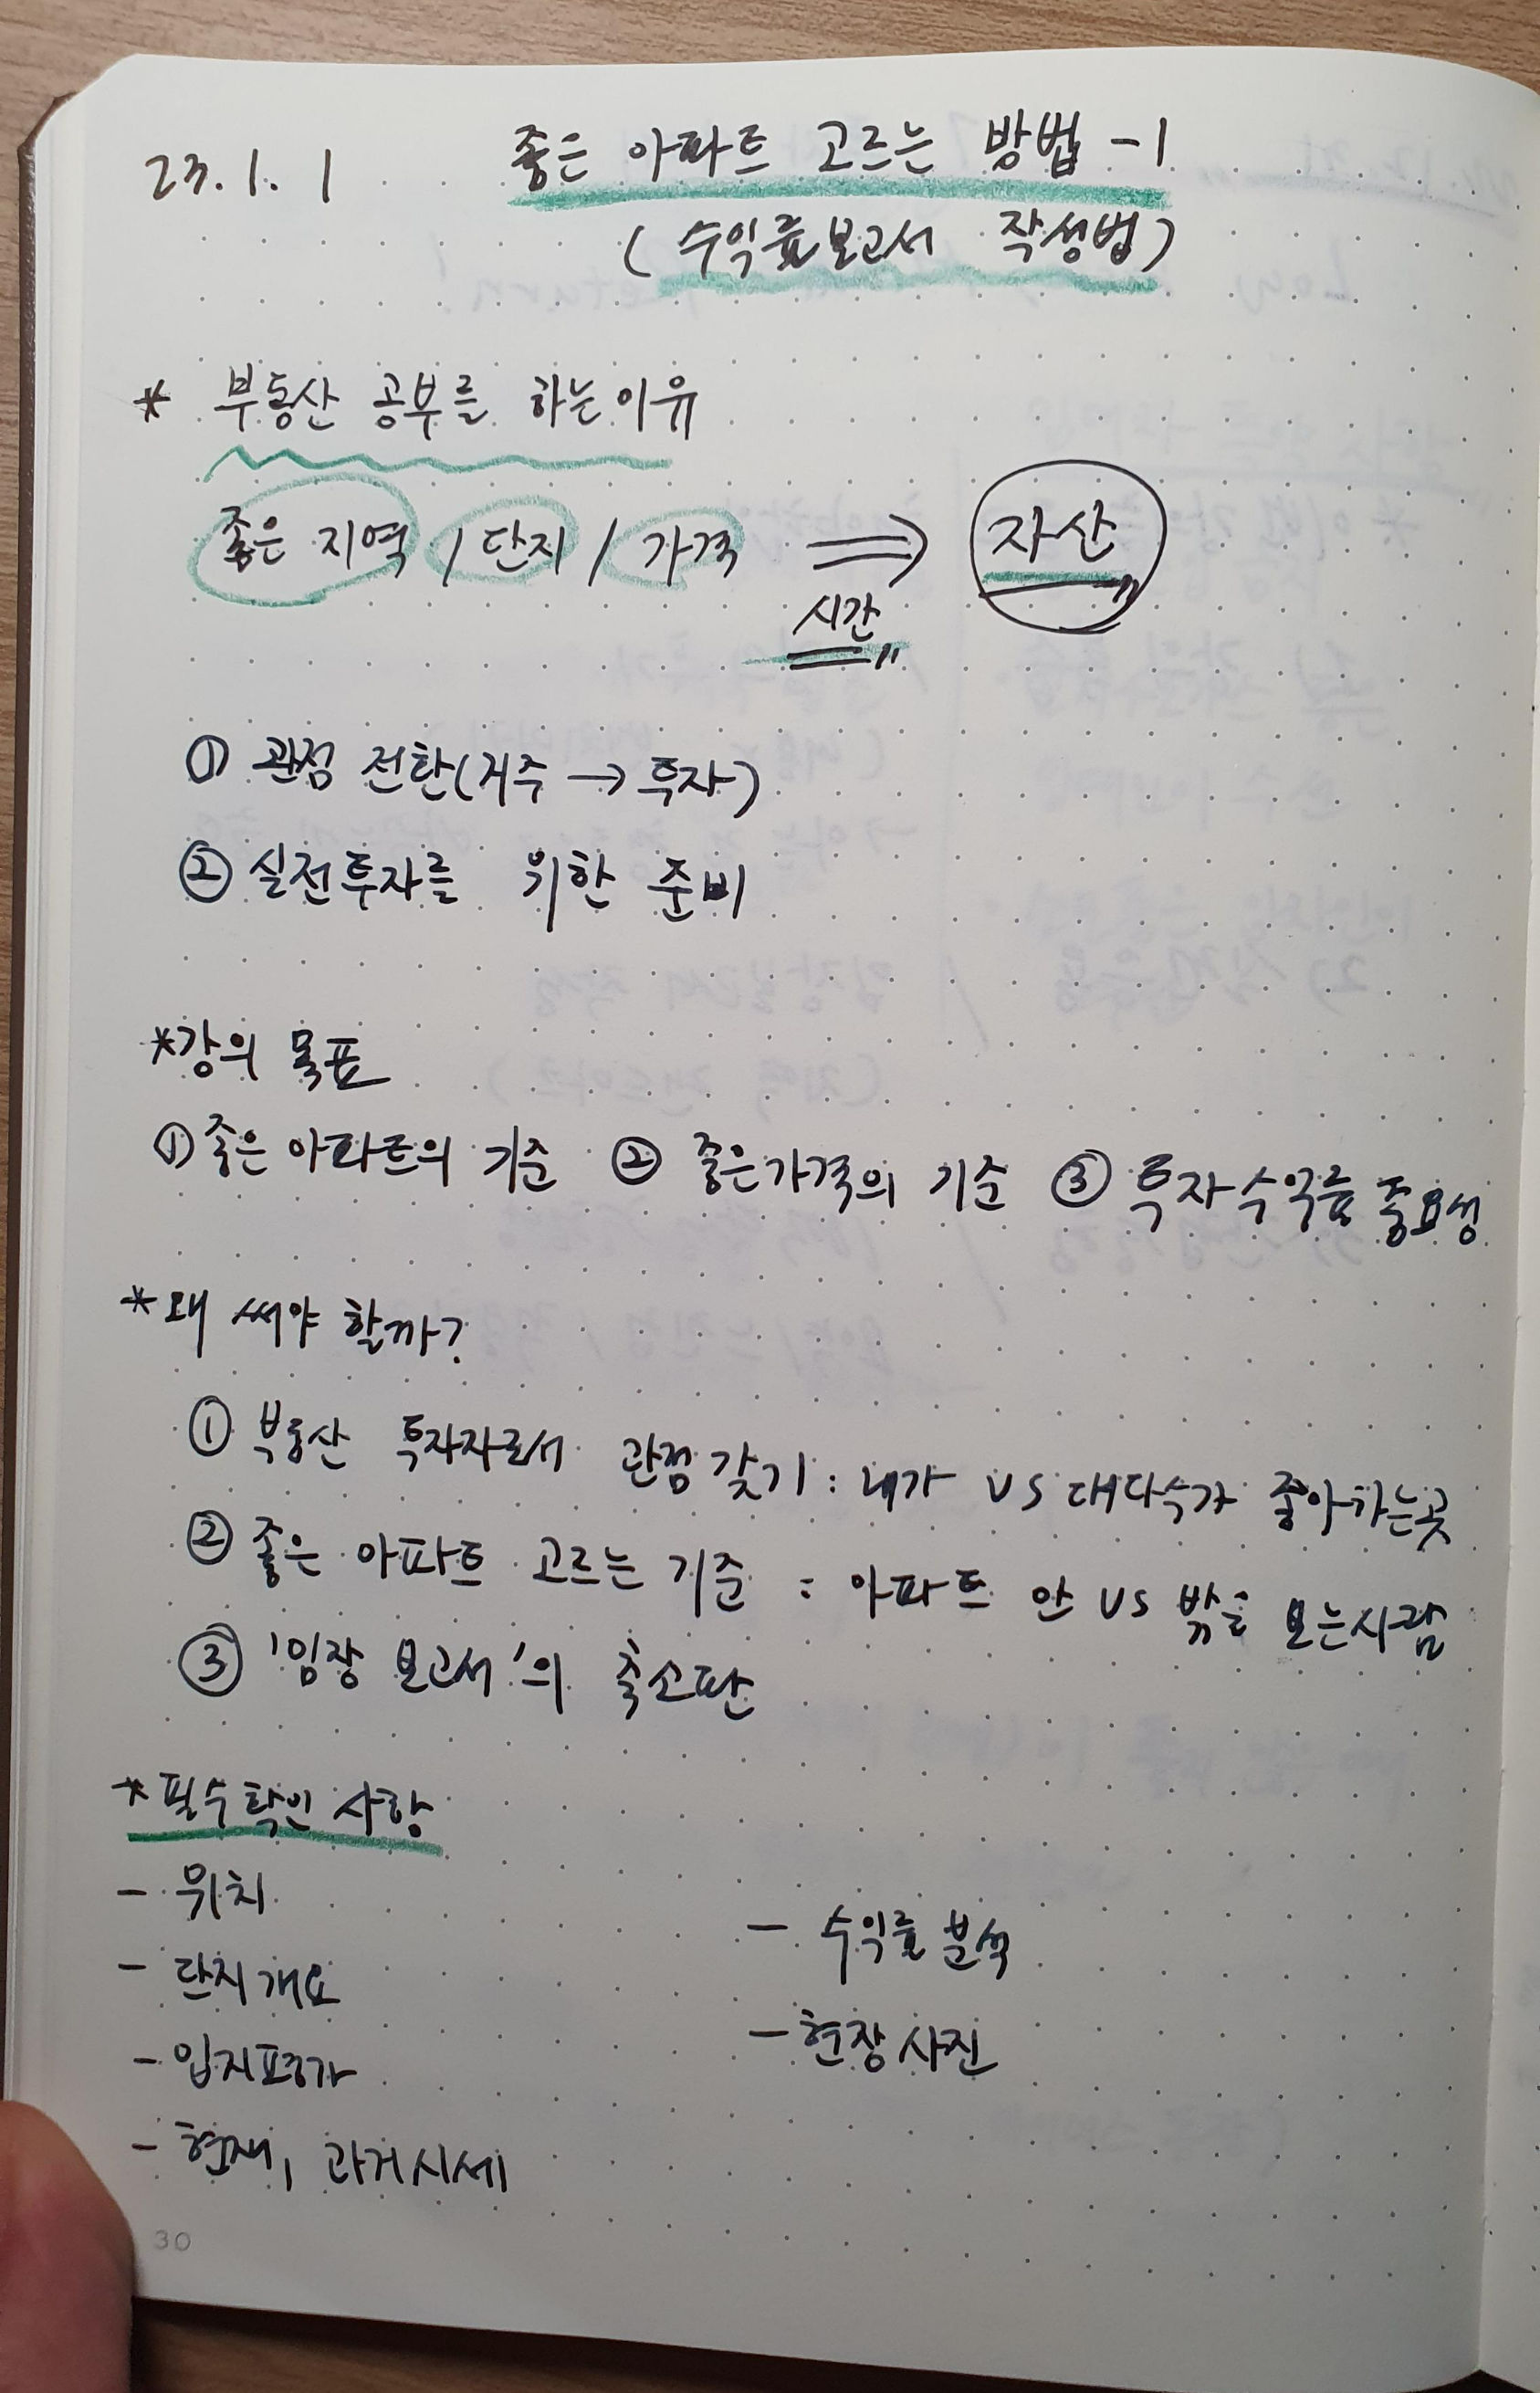 23.1.1 좋은 아파트 고르는 방법 -1
(수익률보고서 작성법)
* 부동산 공부를 하는이유
좋은 지역 / 단지 / 가격 ⇒ 자산
시간
① 관점 전환(거주 → 투자)
② 실전투자를 위한 준비
*강의 목표
① 좋은 아파트의 기준 ② 좋은가격의 기준 ③ 투자수익률 중요성
*왜 써야 할까?
① 부동산 투자자로서 관점 갖기 : 내가 VS 대다수가 좋아하는곳
② 좋은 아파트 고르는 기준 : 아파트 안 VS 밖을 보는사람
③ '임장 보고서'의 축소판
*필수확인 사항
- 위치
- 단지개요
- 입지평가
- 현재, 과거시세
- 수익률 분석
- 현장사진
30